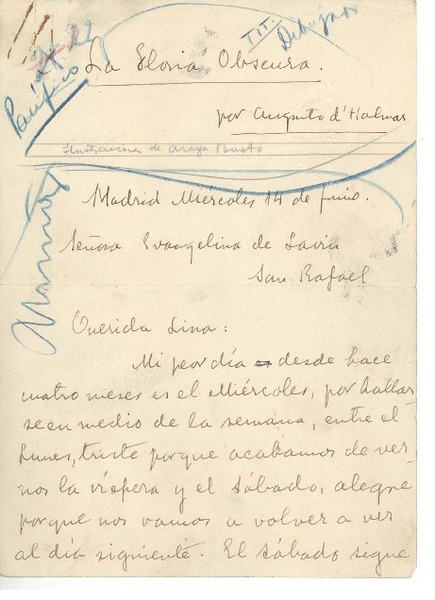 Pacífico
TIT.
Dibujar
La Gloria Obscura.
por Augusto d'Halmar
Ilustraciones de Araya Busto
Madrid Miércoles 14 de junio.
Señora Evangelina de Lavin
San Rafael
Querida Lina:
Mi peor día desde hace
cuatro meses es el Miércoles, por hallar
se en medio de la semana, entre el
Lunes, triste porque acabamos de ver
nos la víspera y el Sábado, alegre
porque nos vamos a volver a ver
al día siguiente. El Sábado sigue